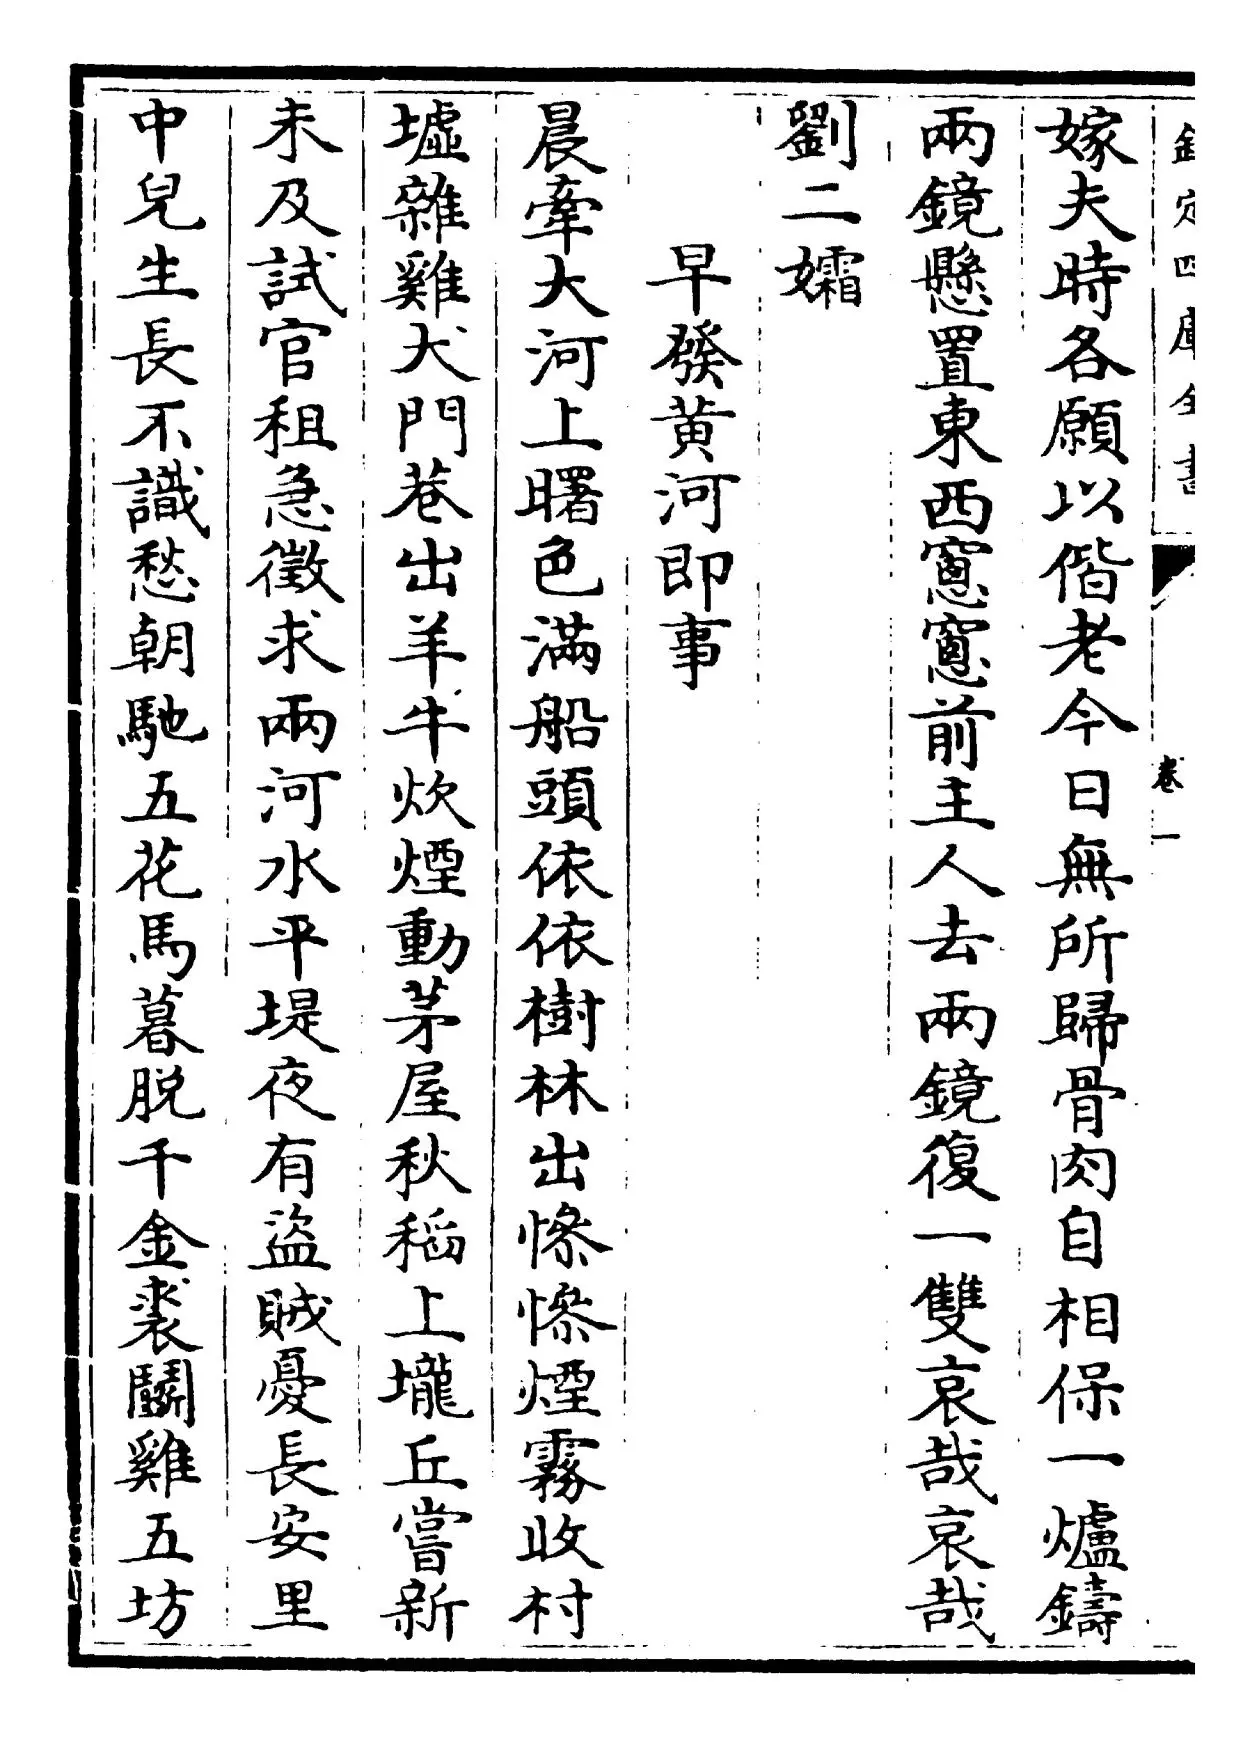 欽定四庫全書
卷一
嫁夫時各願以偕老今日無所歸骨肉自相保一爐鑄
兩鏡懸置東西窻窻前主人去兩鏡復一雙哀哉哀哉
劉二孀
早發黄河即事
晨牽大河上曙色滿船頭依依樹林出慘慘煙霧收村
墟雜雞犬門巷出羊牛炊煙動茅屋秋稻上壠丘嘗新
未及試官租急徵求兩河水平堤夜有盜賊憂長安里
中兒生長不識愁朝馳五花馬暮脱千金裘鬭雞五坊